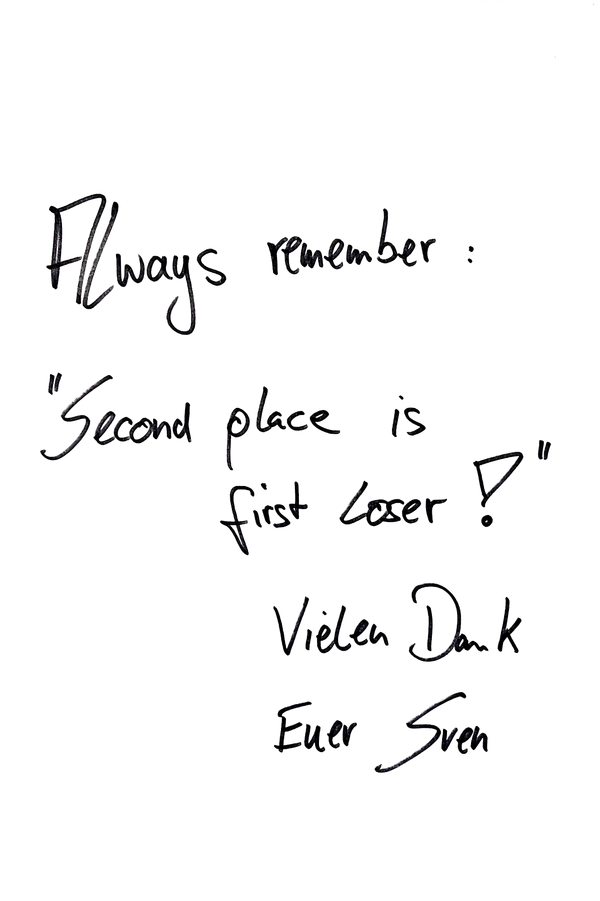 Always remember :
"Second place is
first loser !"
Vielen Dank
Euer Sven